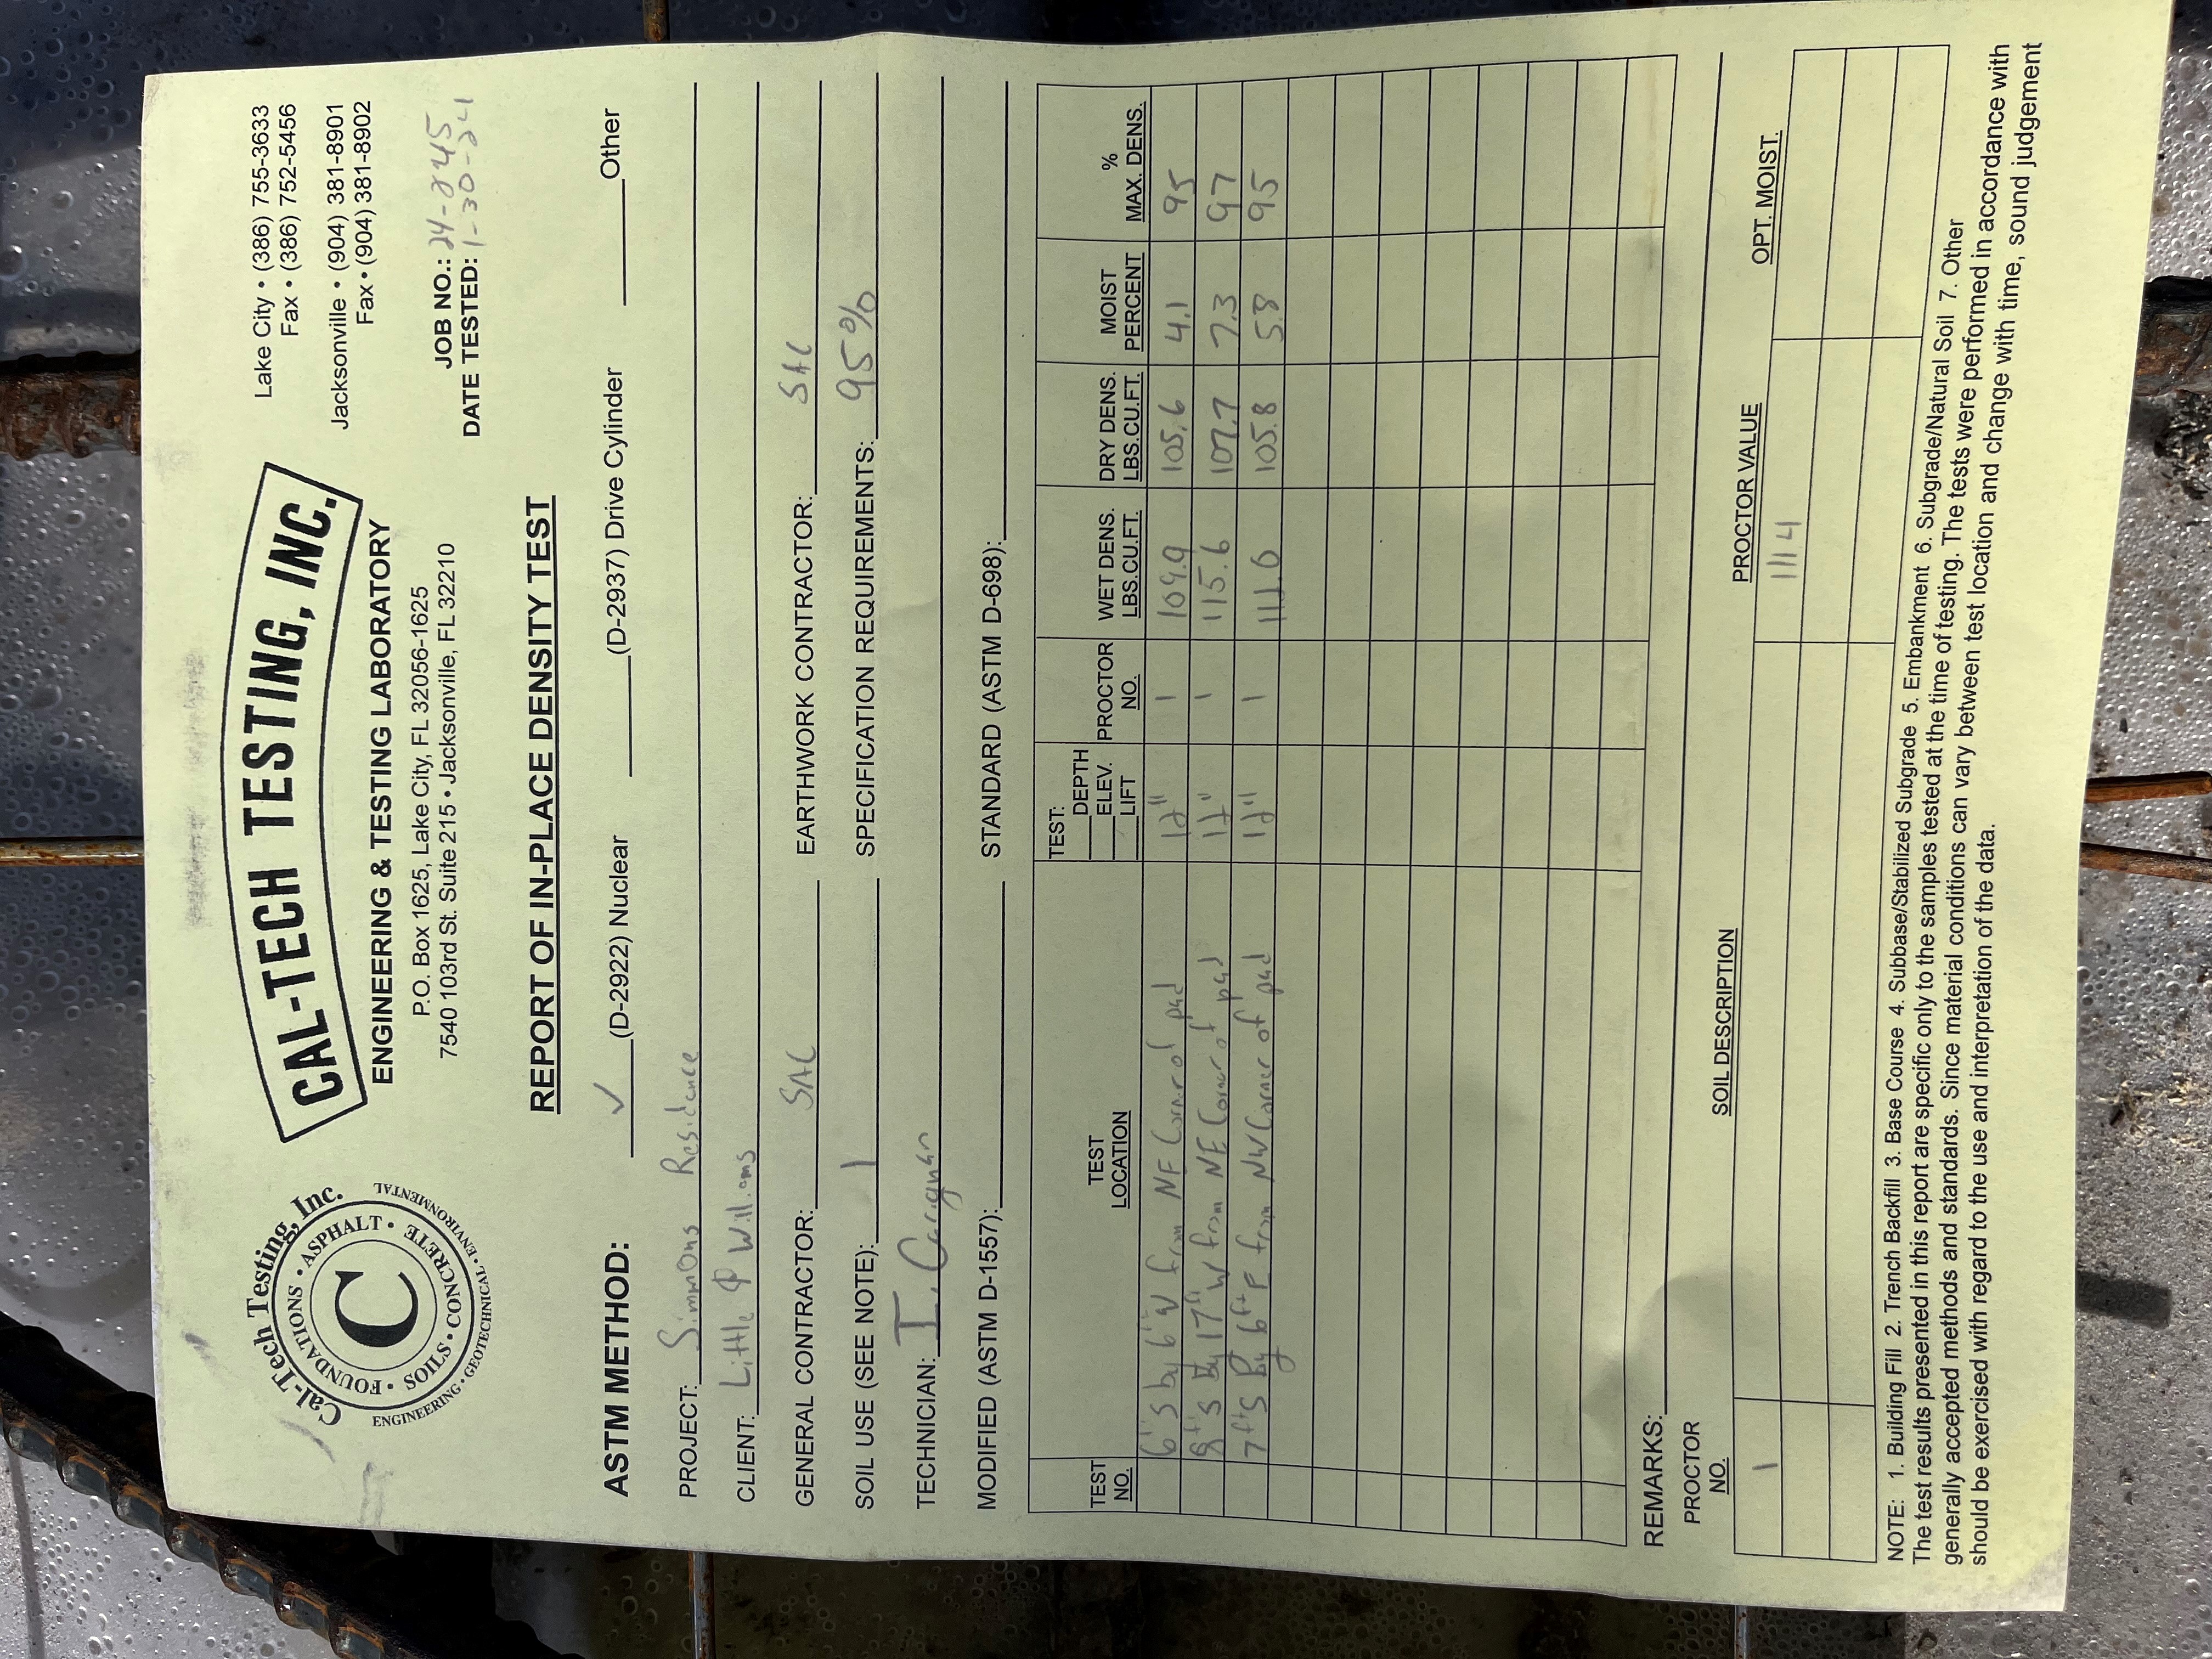 Cal-Tech Testing, Inc.
FOUNDATIONS • ASPHALT •
SOILS • CONCRETE
C
ENGINEERING • GEOTECHNICAL • ENVIRONMENTAL
CAL-TECH TESTING, INC.
ENGINEERING & TESTING LABORATORY
P.O. Box 1625, Lake City, FL 32056-1625
7540 103rd St. Suite 215 • Jacksonville, FL 32210
Lake City • (386) 755-3633
Fax • (386) 752-5456
Jacksonville • (904) 381-8901
Fax • (904) 381-8902
JOB NO.:
DATE TESTED: 1-30-24
REPORT OF IN-PLACE DENSITY TEST
ASTM METHOD: ✓ (D-2922) Nuclear (D-2937) Drive Cylinder Other
PROJECT: Simmons Residence
CLIENT: Little & Williams
GENERAL CONTRACTOR: SAC EARTHWORK CONTRACTOR: SAC
SOIL USE (SEE NOTE): 1 SPECIFICATION REQUIREMENTS: 95%
TECHNICIAN: I.
MODIFIED (ASTM D-1557): STANDARD (ASTM D-698):
TEST NO. TEST LOCATION TEST: DEPTH ELEV. LIFT PROCTOR NO. WET DENS. LBS.CU.FT. DRY DENS. LBS.CU.FT. MOIST PERCENT % MAX. DENS.
6' S by 6' W from NE Corner of pad 12" 1 109.9 105.6 4.1 95
8ft S By 17ft W from NE Corner of pad 12" 1 115.6 107.7 7.3 97
7ft S By 6ft E from NW Corner of pad 12" 1 105.8 5.8 95
REMARKS:
PROCTOR NO. SOIL DESCRIPTION PROCTOR VALUE OPT. MOIST.
1 111.4
NOTE: 1. Building Fill 2. Trench Backfill 3. Base Course 4. Subbase/Stabilized Subgrade 5. Embankment 6. Subgrade/Natural Soil 7. Other
The test results presented in this report are specific only to the samples tested at the time of testing. The tests were performed in accordance with
generally accepted methods and standards. Since material conditions can vary between test location and change with time, sound judgement
should be exercised with regard to the use and interpretation of the data.